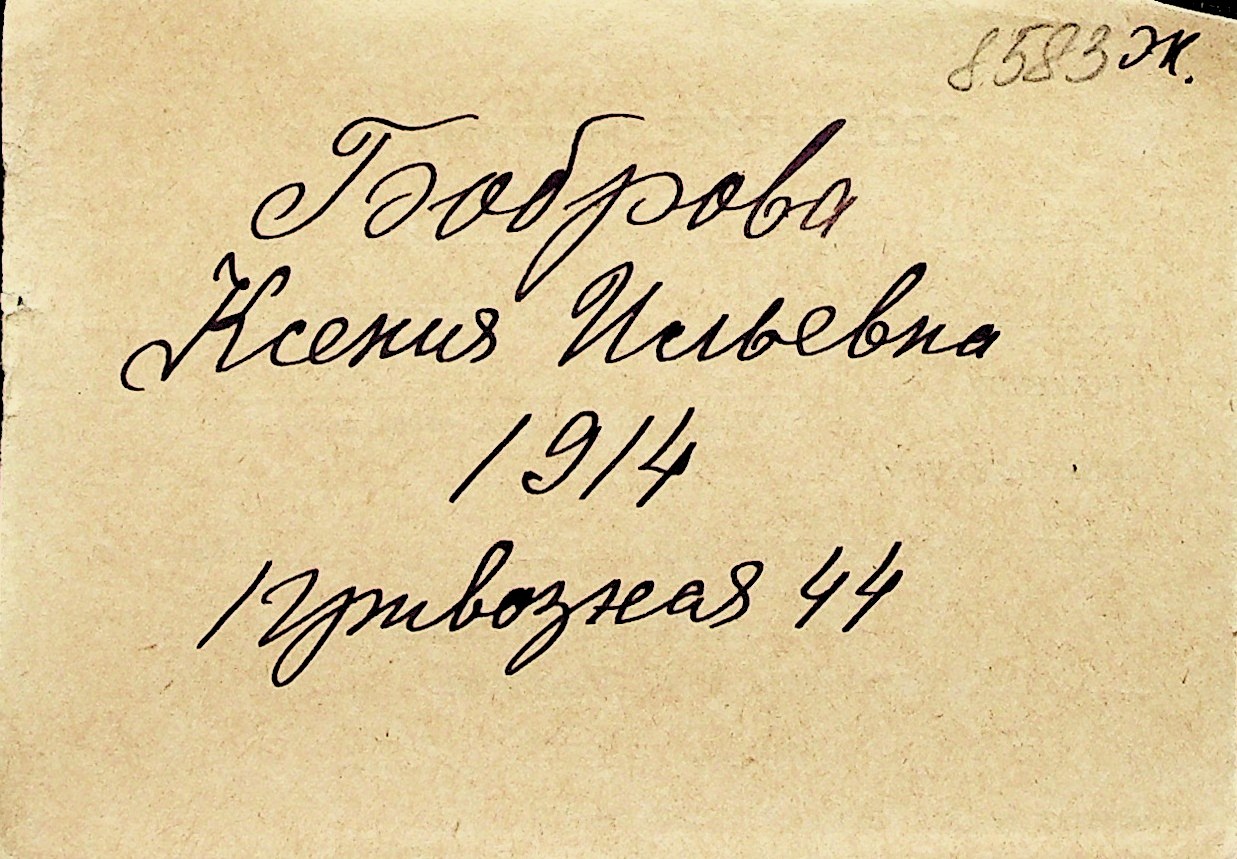 8583 Ж.
Боброва
Ксения Ильевна
1914
Привозная 44